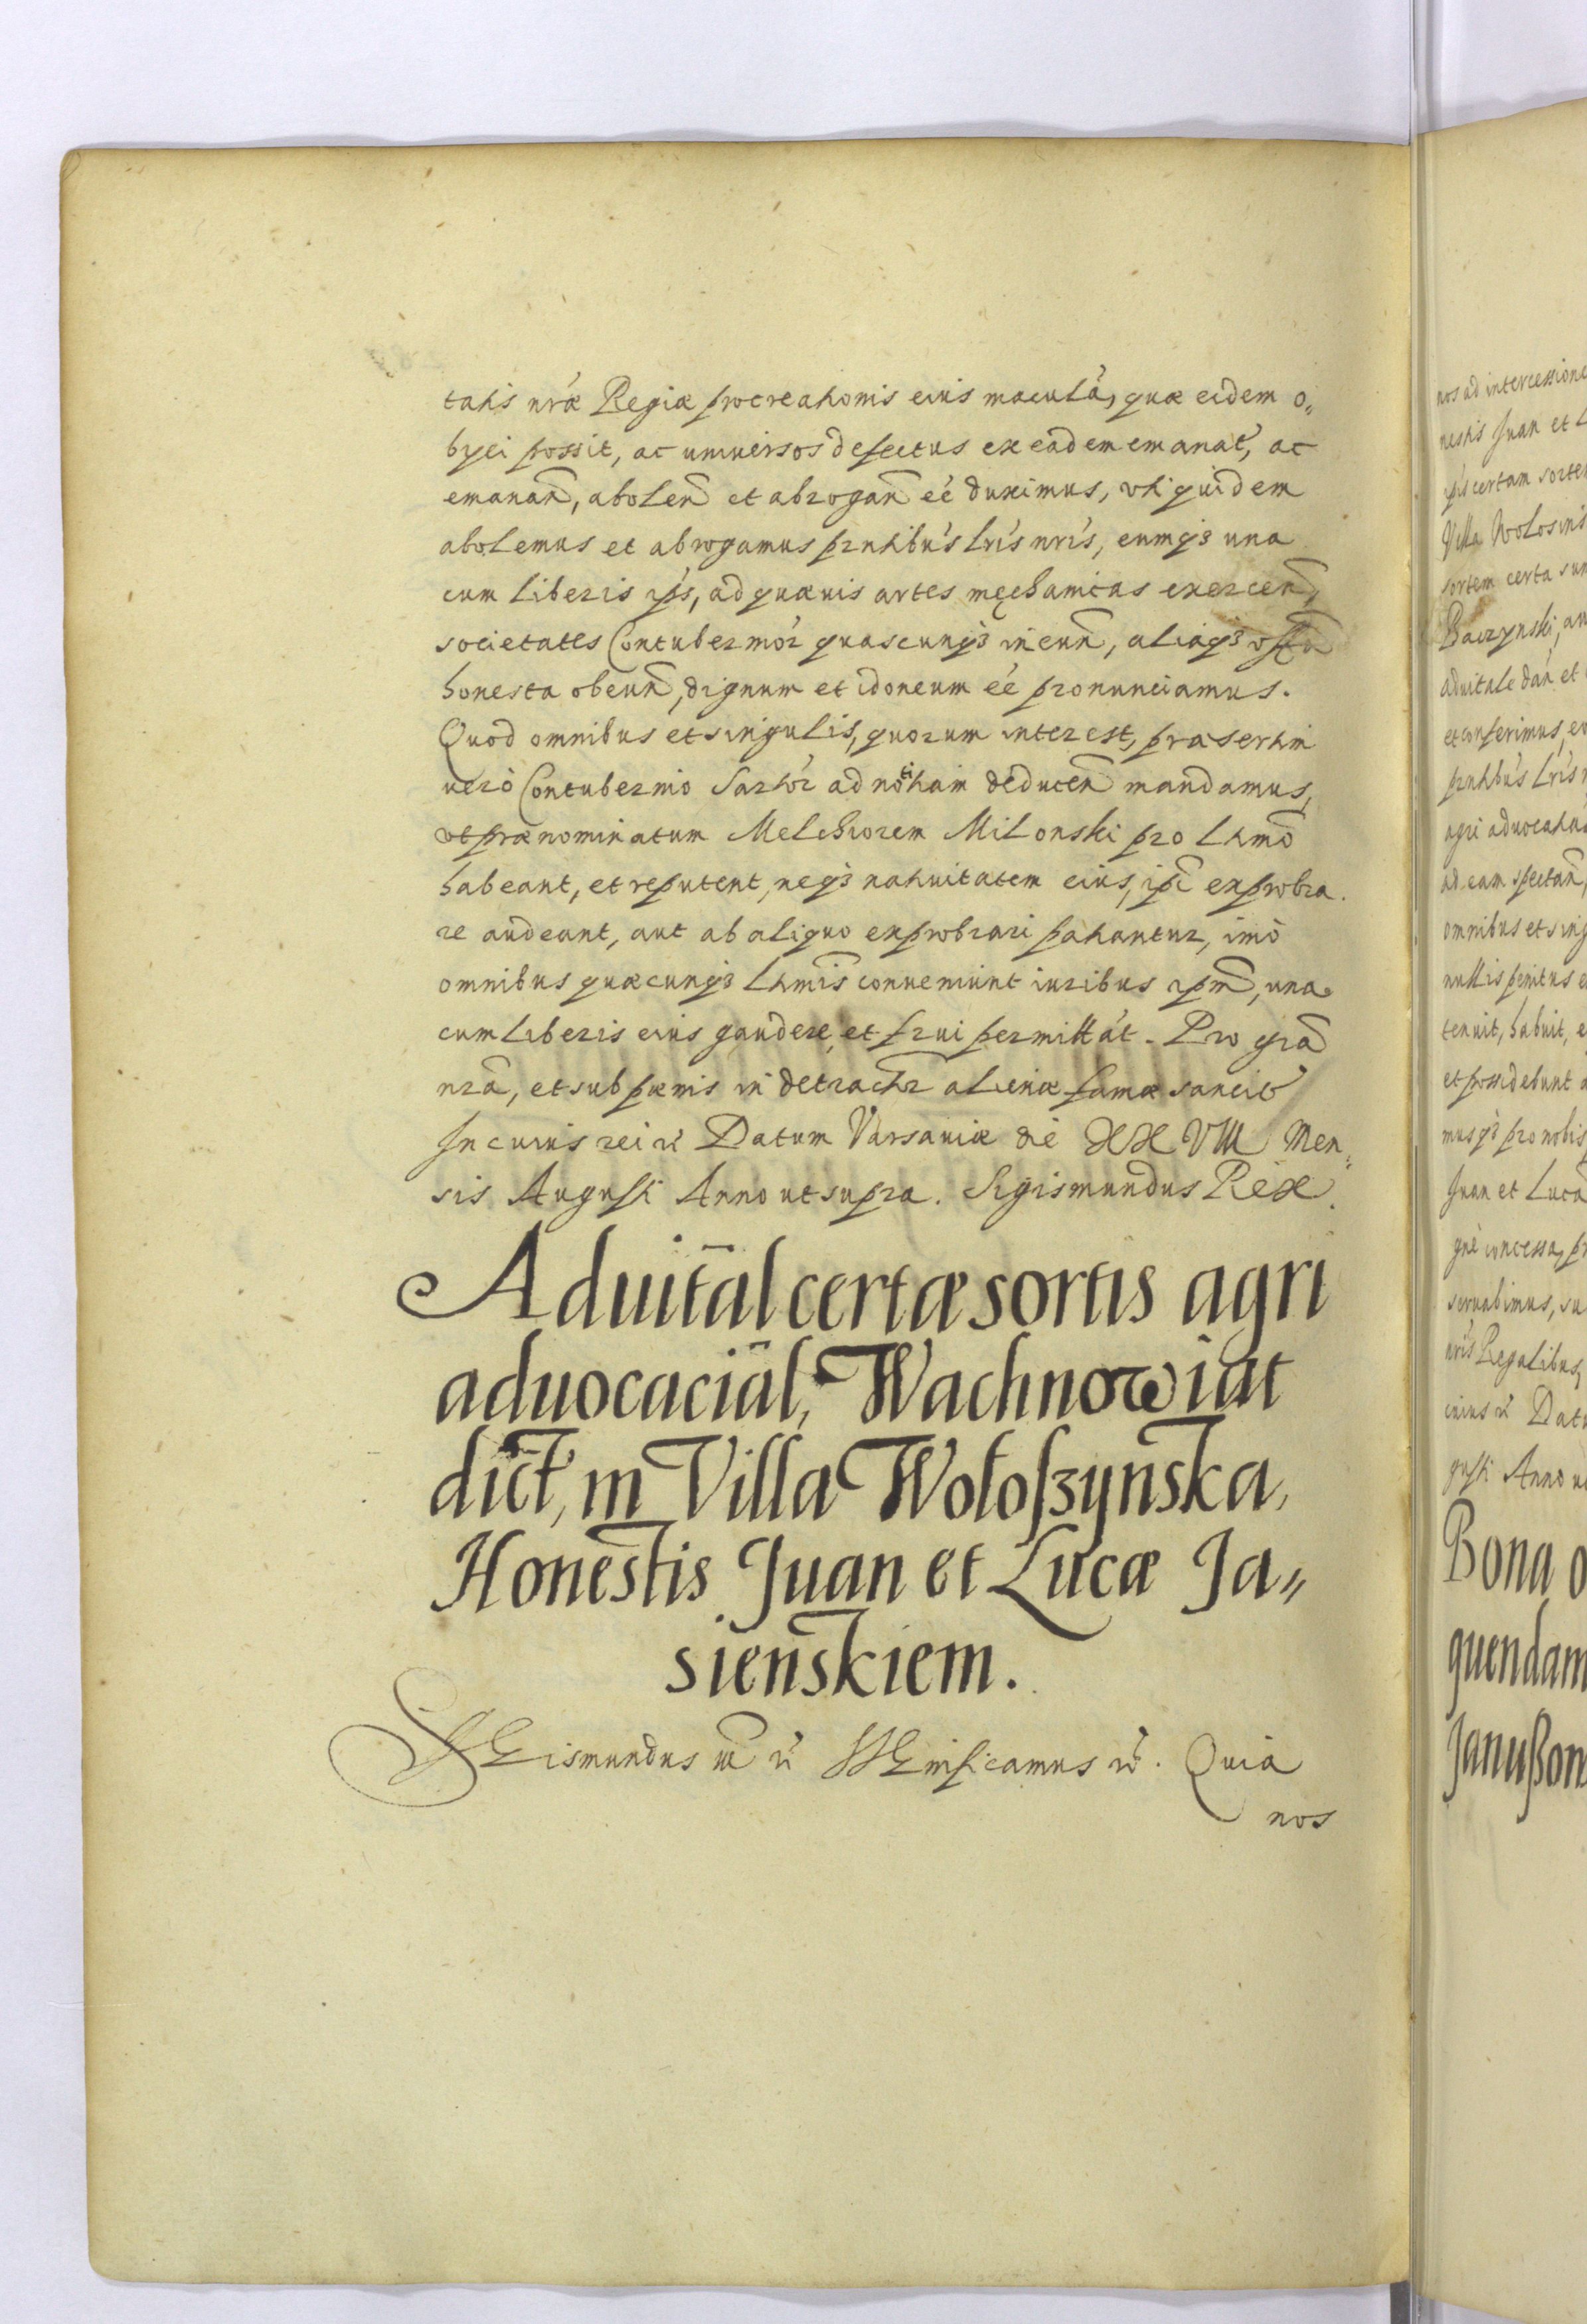 tatis nrae Regiae procreationis eius maculam, quae eidem o„
byci possit, ac universos defectus ex eadem emanat, ac
emanan̄, abolen̄ et abrogan̄ eē duximus, vti quidem
abolemus et abrogamus prntibus lris nris, eumqз una
cum liberis ips, ad quaevis artes męchanicas exercen̄,
societates Contubernior quascunqз ineun̄, aliaqз
honesta obeun̄, dignum et idoneum eē pronunciamus.
Quod omnibus et singulis, quorum interest, praesertim
verò Contubernio Sartor ad notitiam deducen̄ mandamus,
vt praenominatum Melchiorem Milonski pro ltmo
habeant, et reputent, neqз nativitatem eius, ipi exprobra
re audeant, aut ab aliquo exprobrari patiantur, imò
omnibus quaecunqз ltmis conveniunt iuribus ipm, una
cum liberis eius gaudere, et frui permittāt. Pro gra
nra, et sub paenis in detractor alienae famae sancit
In cuius rei rc Datum Varsaviae die XX VIII Men„
sis Augusti Anno ut supra. Sigismundus Rex.
Aduital certae sortis agri
aduocacial, Wachnowiat
dict, in Villa Wołoſzynska,
Honestis Juan et Lucae Ja„
sienskiem.
Sigismundus III rc Significamus rc. Quia
nos
nos ad intercessione
nestis Juan et L
ips certam sortem
Villa Wolosins
sortem certa sum
Baczynski, an
aduitale dan et
et conferimus, eu
prntibus lris n
agri aduocatia
ad eam spectan̄,
omnibus et sing
nullis penitus e
tenuit, habuit, e
et possidebunt a
musqз pro nobis
Juan et Luca
gnē concessa, pr
servabimus, su
nris Regalibus,
cuius rc Datu
gusti Anno ut
Bona o
quendam
Janußon